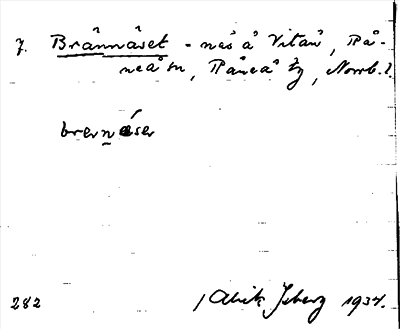 7. Brännäset - näs å Vitån, Rå-
neå sn, Råneå tg, Norrb. l.
brernáser
282 / Alvik Isberg 1937.